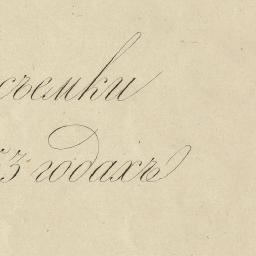 съемки
53 годахъ